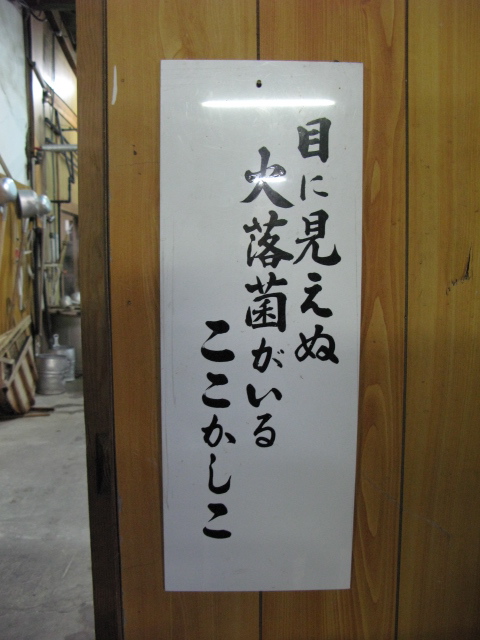 目に見えぬ
火落菌がいる
ここかしこ